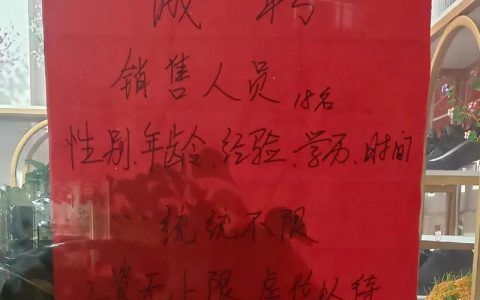 诚聘
销售人员 18名
性别、年龄、经验、学历、时间
、、、统统不限
工资无上限